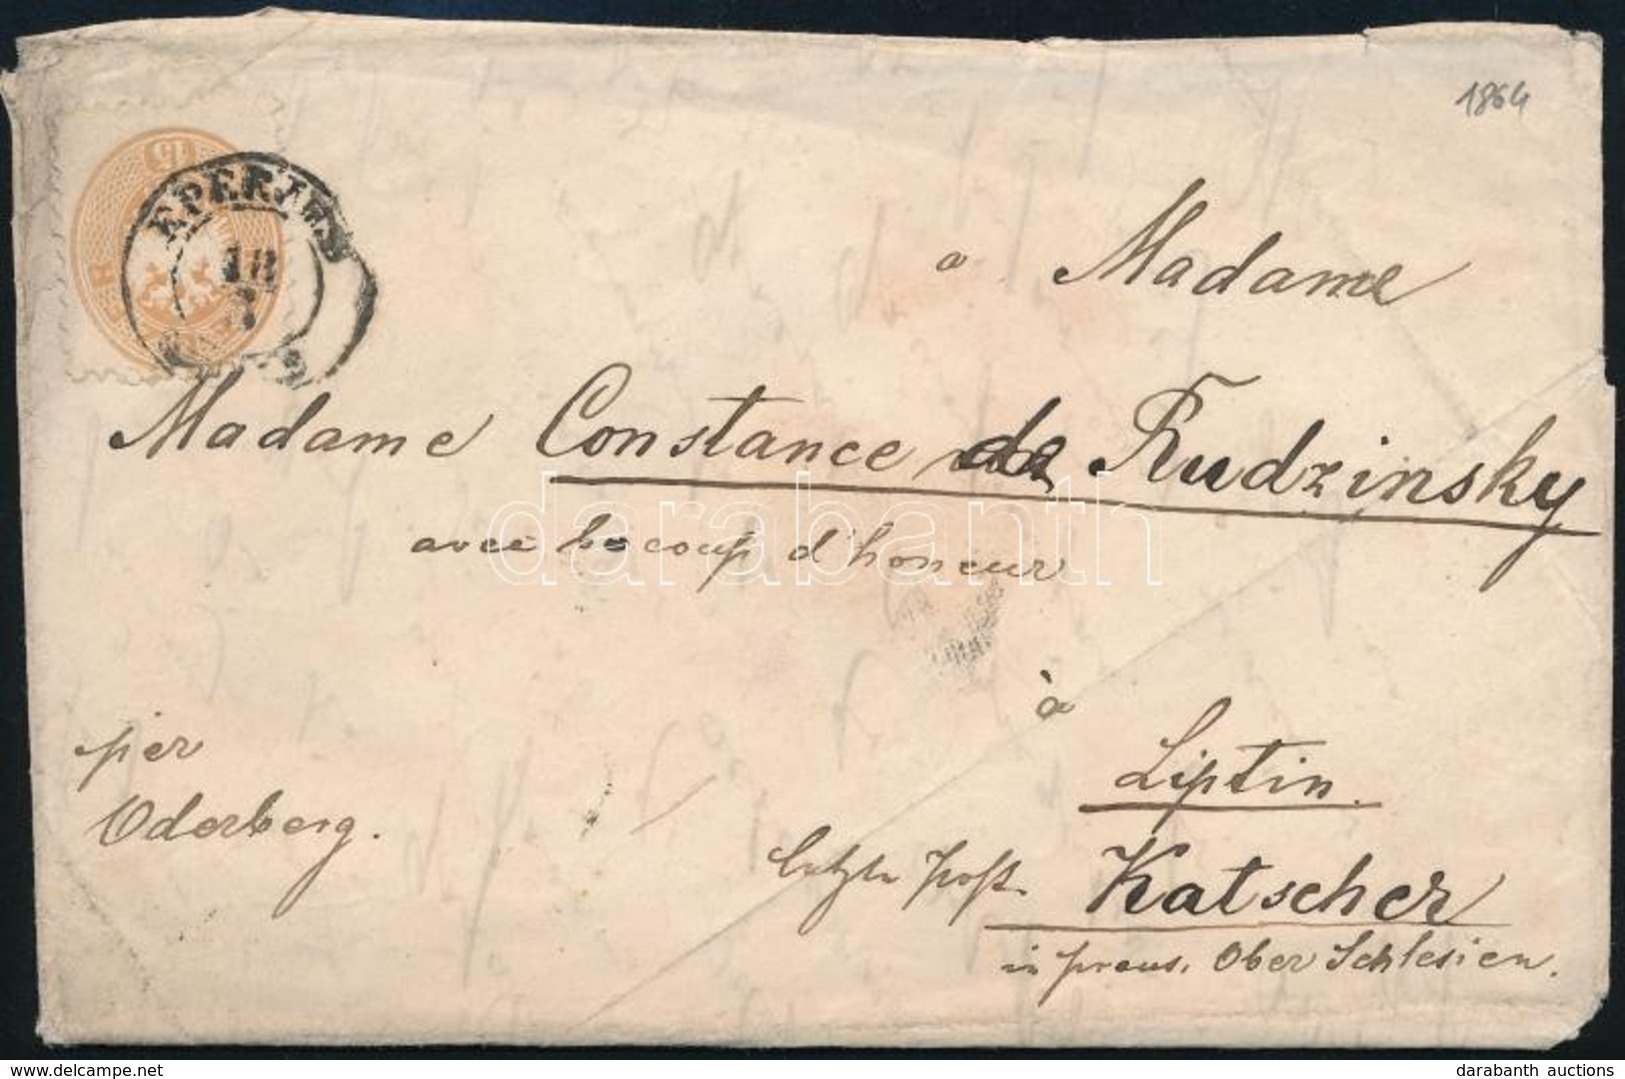 1864
15
EPERIES
18
a Madame
Madame Constance de Rudzinsky
avec bocoup d'honeur
darabanth
à
Liptin.
per
Oderberg.
letzte Post
Katscher
in preus. Ober Schlesien.
www.delcampe.net
darabanth auctions